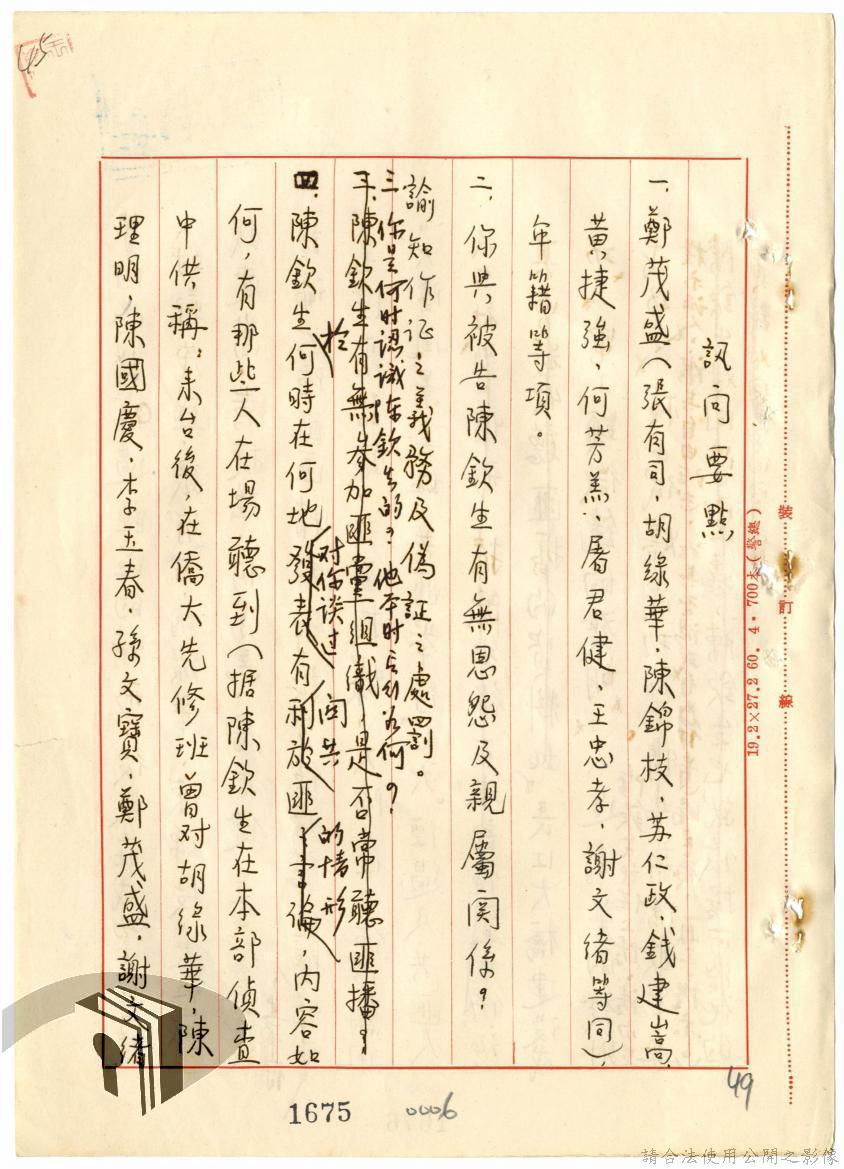 訊问要點
一、鄭茂盛(張有司、胡綠華、陳錦枝、苏仁政、錢建嵩、
黃捷強、何芳羔、屠君健、王忠孝、謝文緒等同)、
年籍等項。
二、你與被告陳欽生有無恩怨及親屬関係?
諭知作证之義務及偽証之處罰。
三、你是何时認識陈欽生的?他平时言行为何?
三、陳欽生有無參加匪黨組織,是否常聽匪播?
四、陳欽生何時在何地發表有利於匪之言論,內容如
於
对你谈过
関共
的情形
何,有那些人在場聽到(据陳欽生在本部偵查
中供稱:来台後,在僑大先修班曾对胡綠華、陳
理明、陳國慶、李玉春、孫文寶、鄭茂盛、謝文緒
裝訂線
19.2×27.2 60.4.700本(警總)
45
49
1675
0006
請合法使用公開之影像